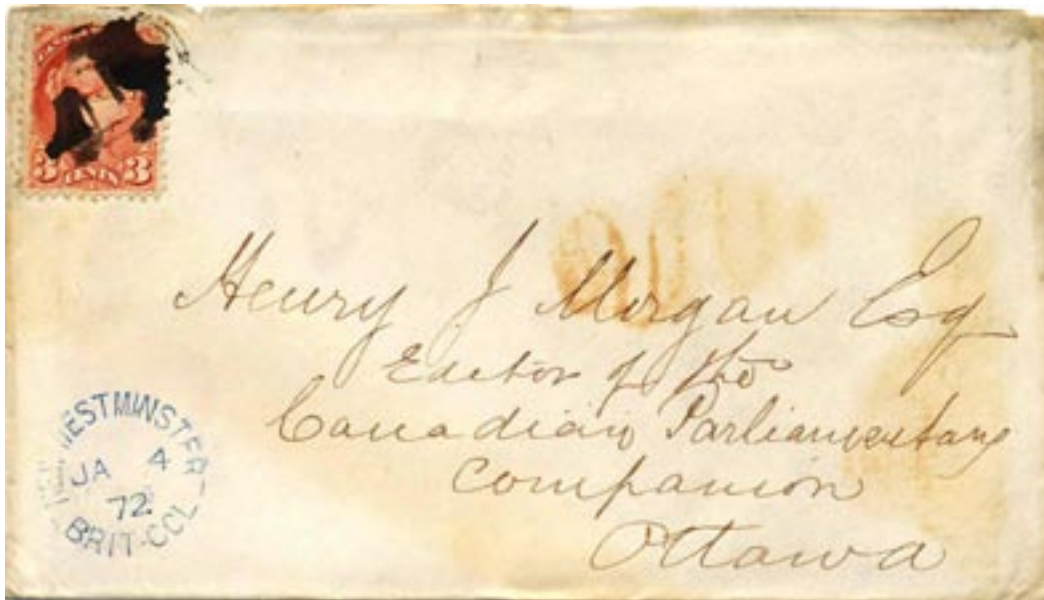 3 CENTS 3
Henry J Morgan Esq
Editor of the
Canadian Parliamentary
Companion
Ottawa
NEW WESTMINSTER
JA 4
72
BRIT-COL